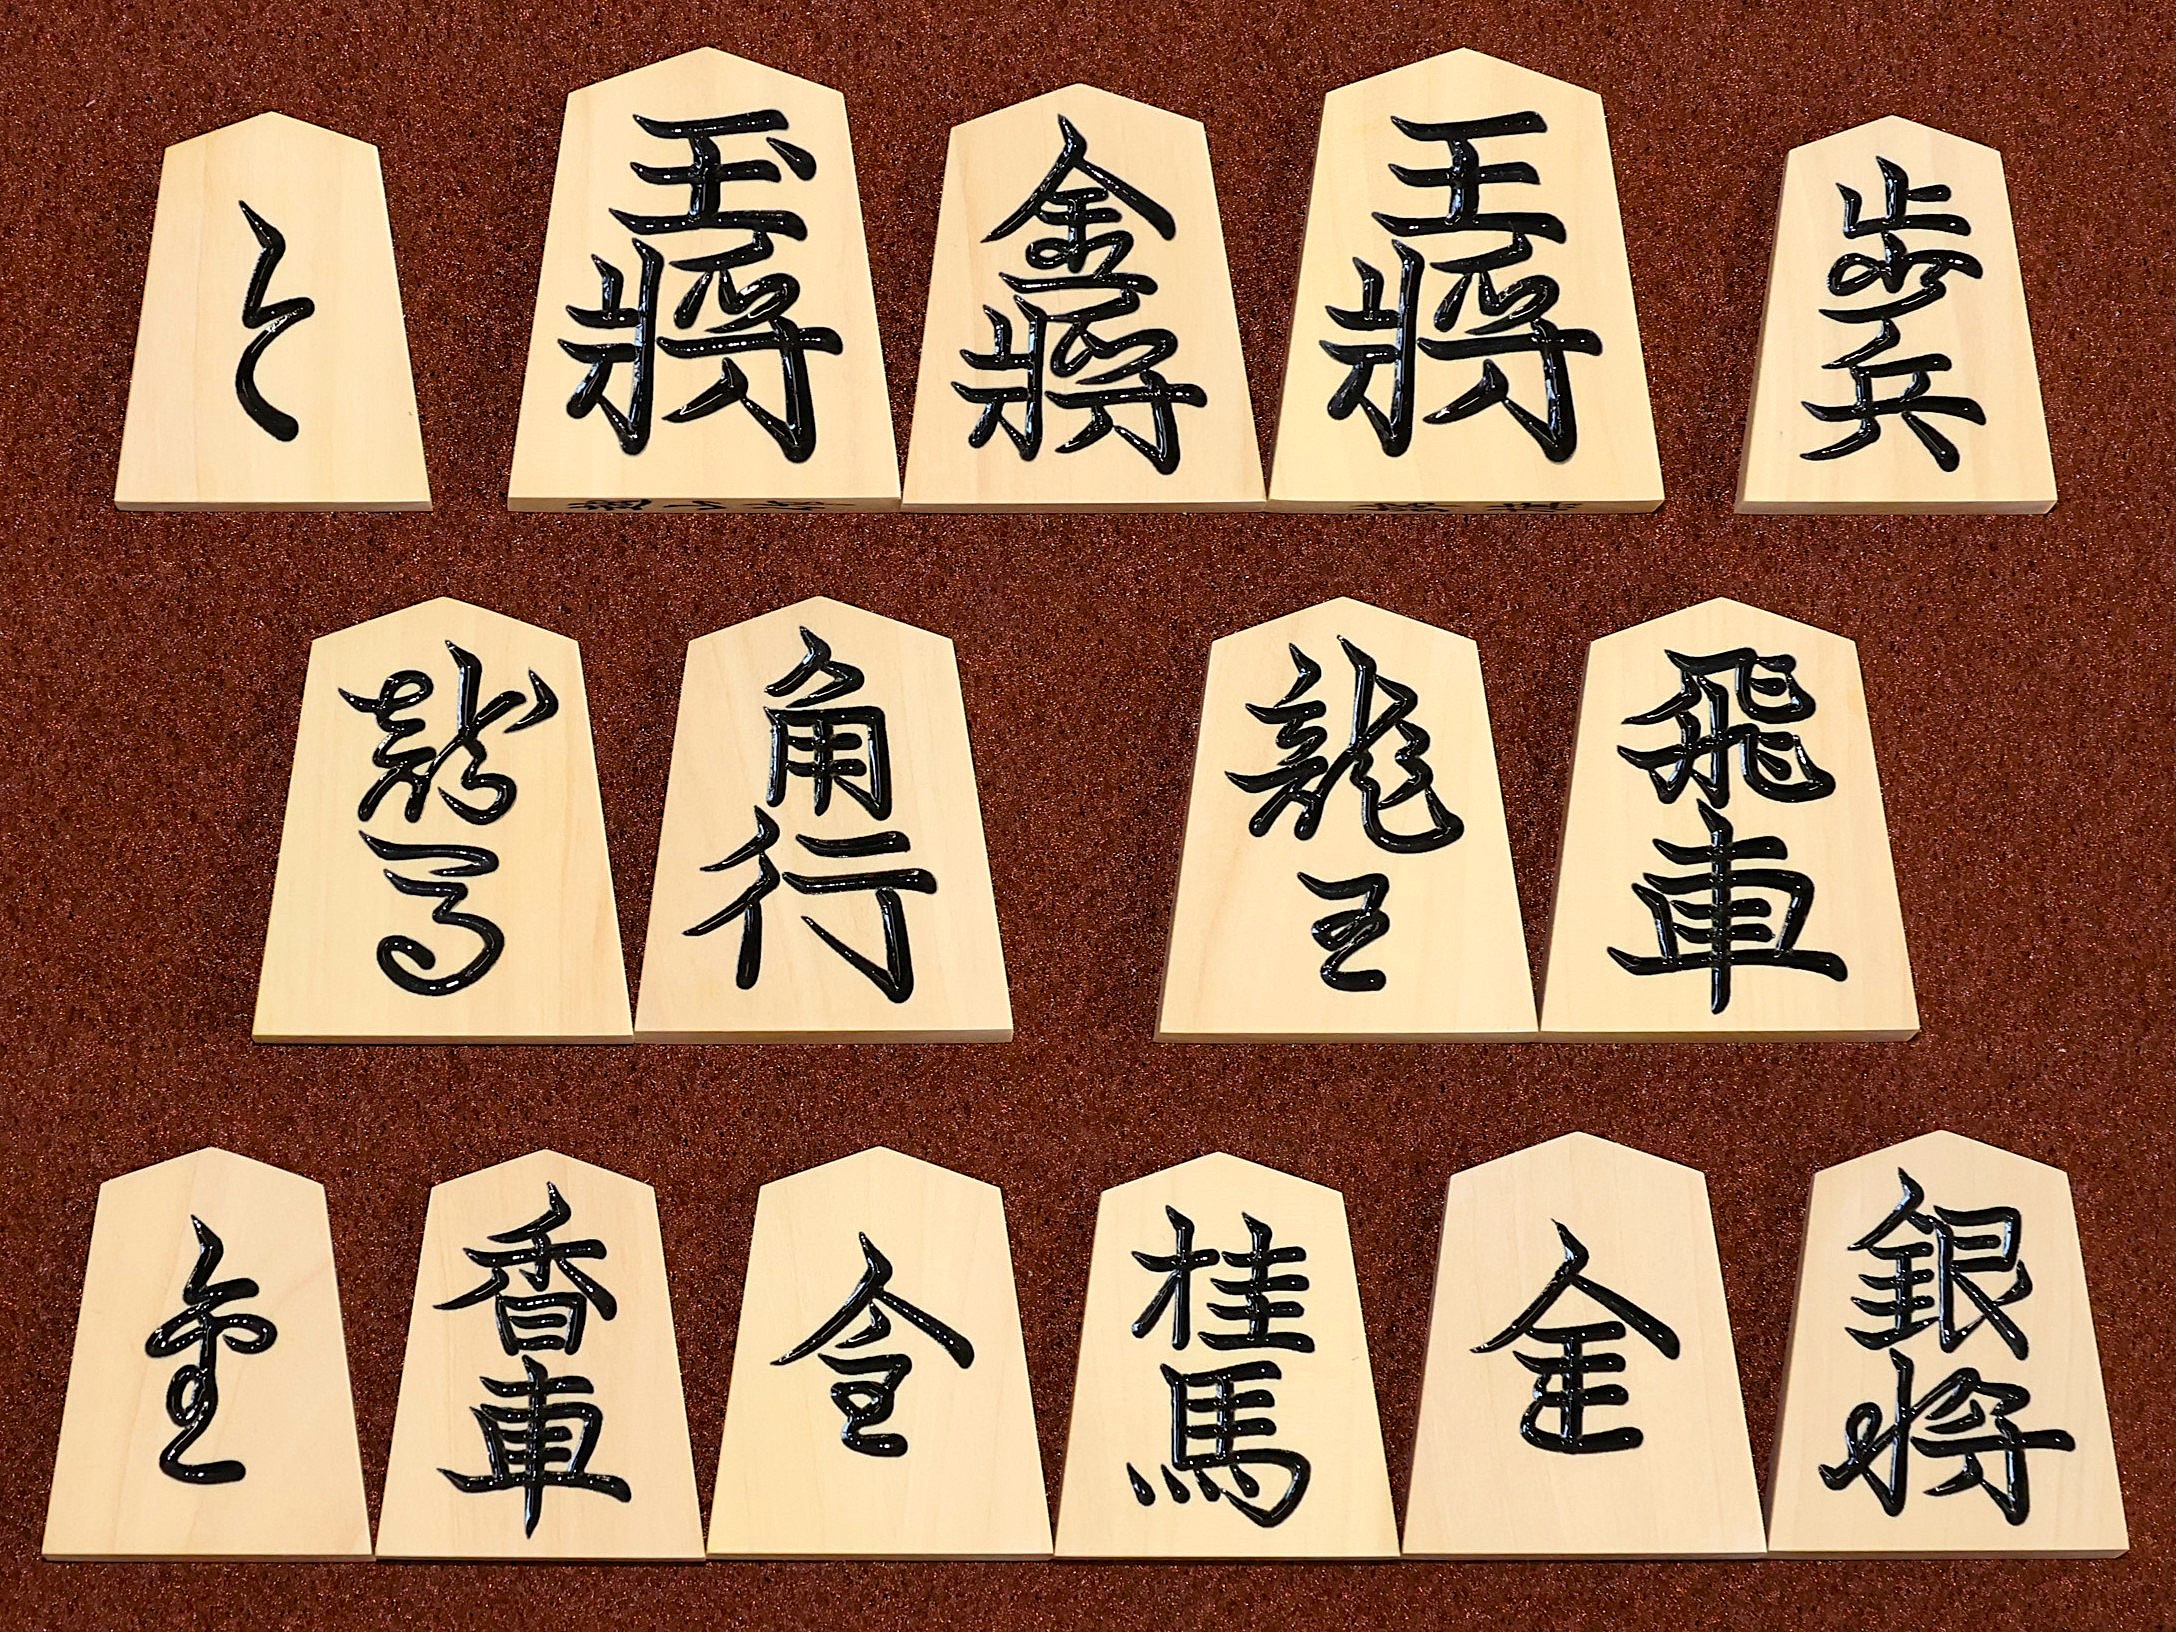 と
玉將
金將
王將
歩兵
龍馬
角行
龍王
飛車
香車
桂馬
金
銀将